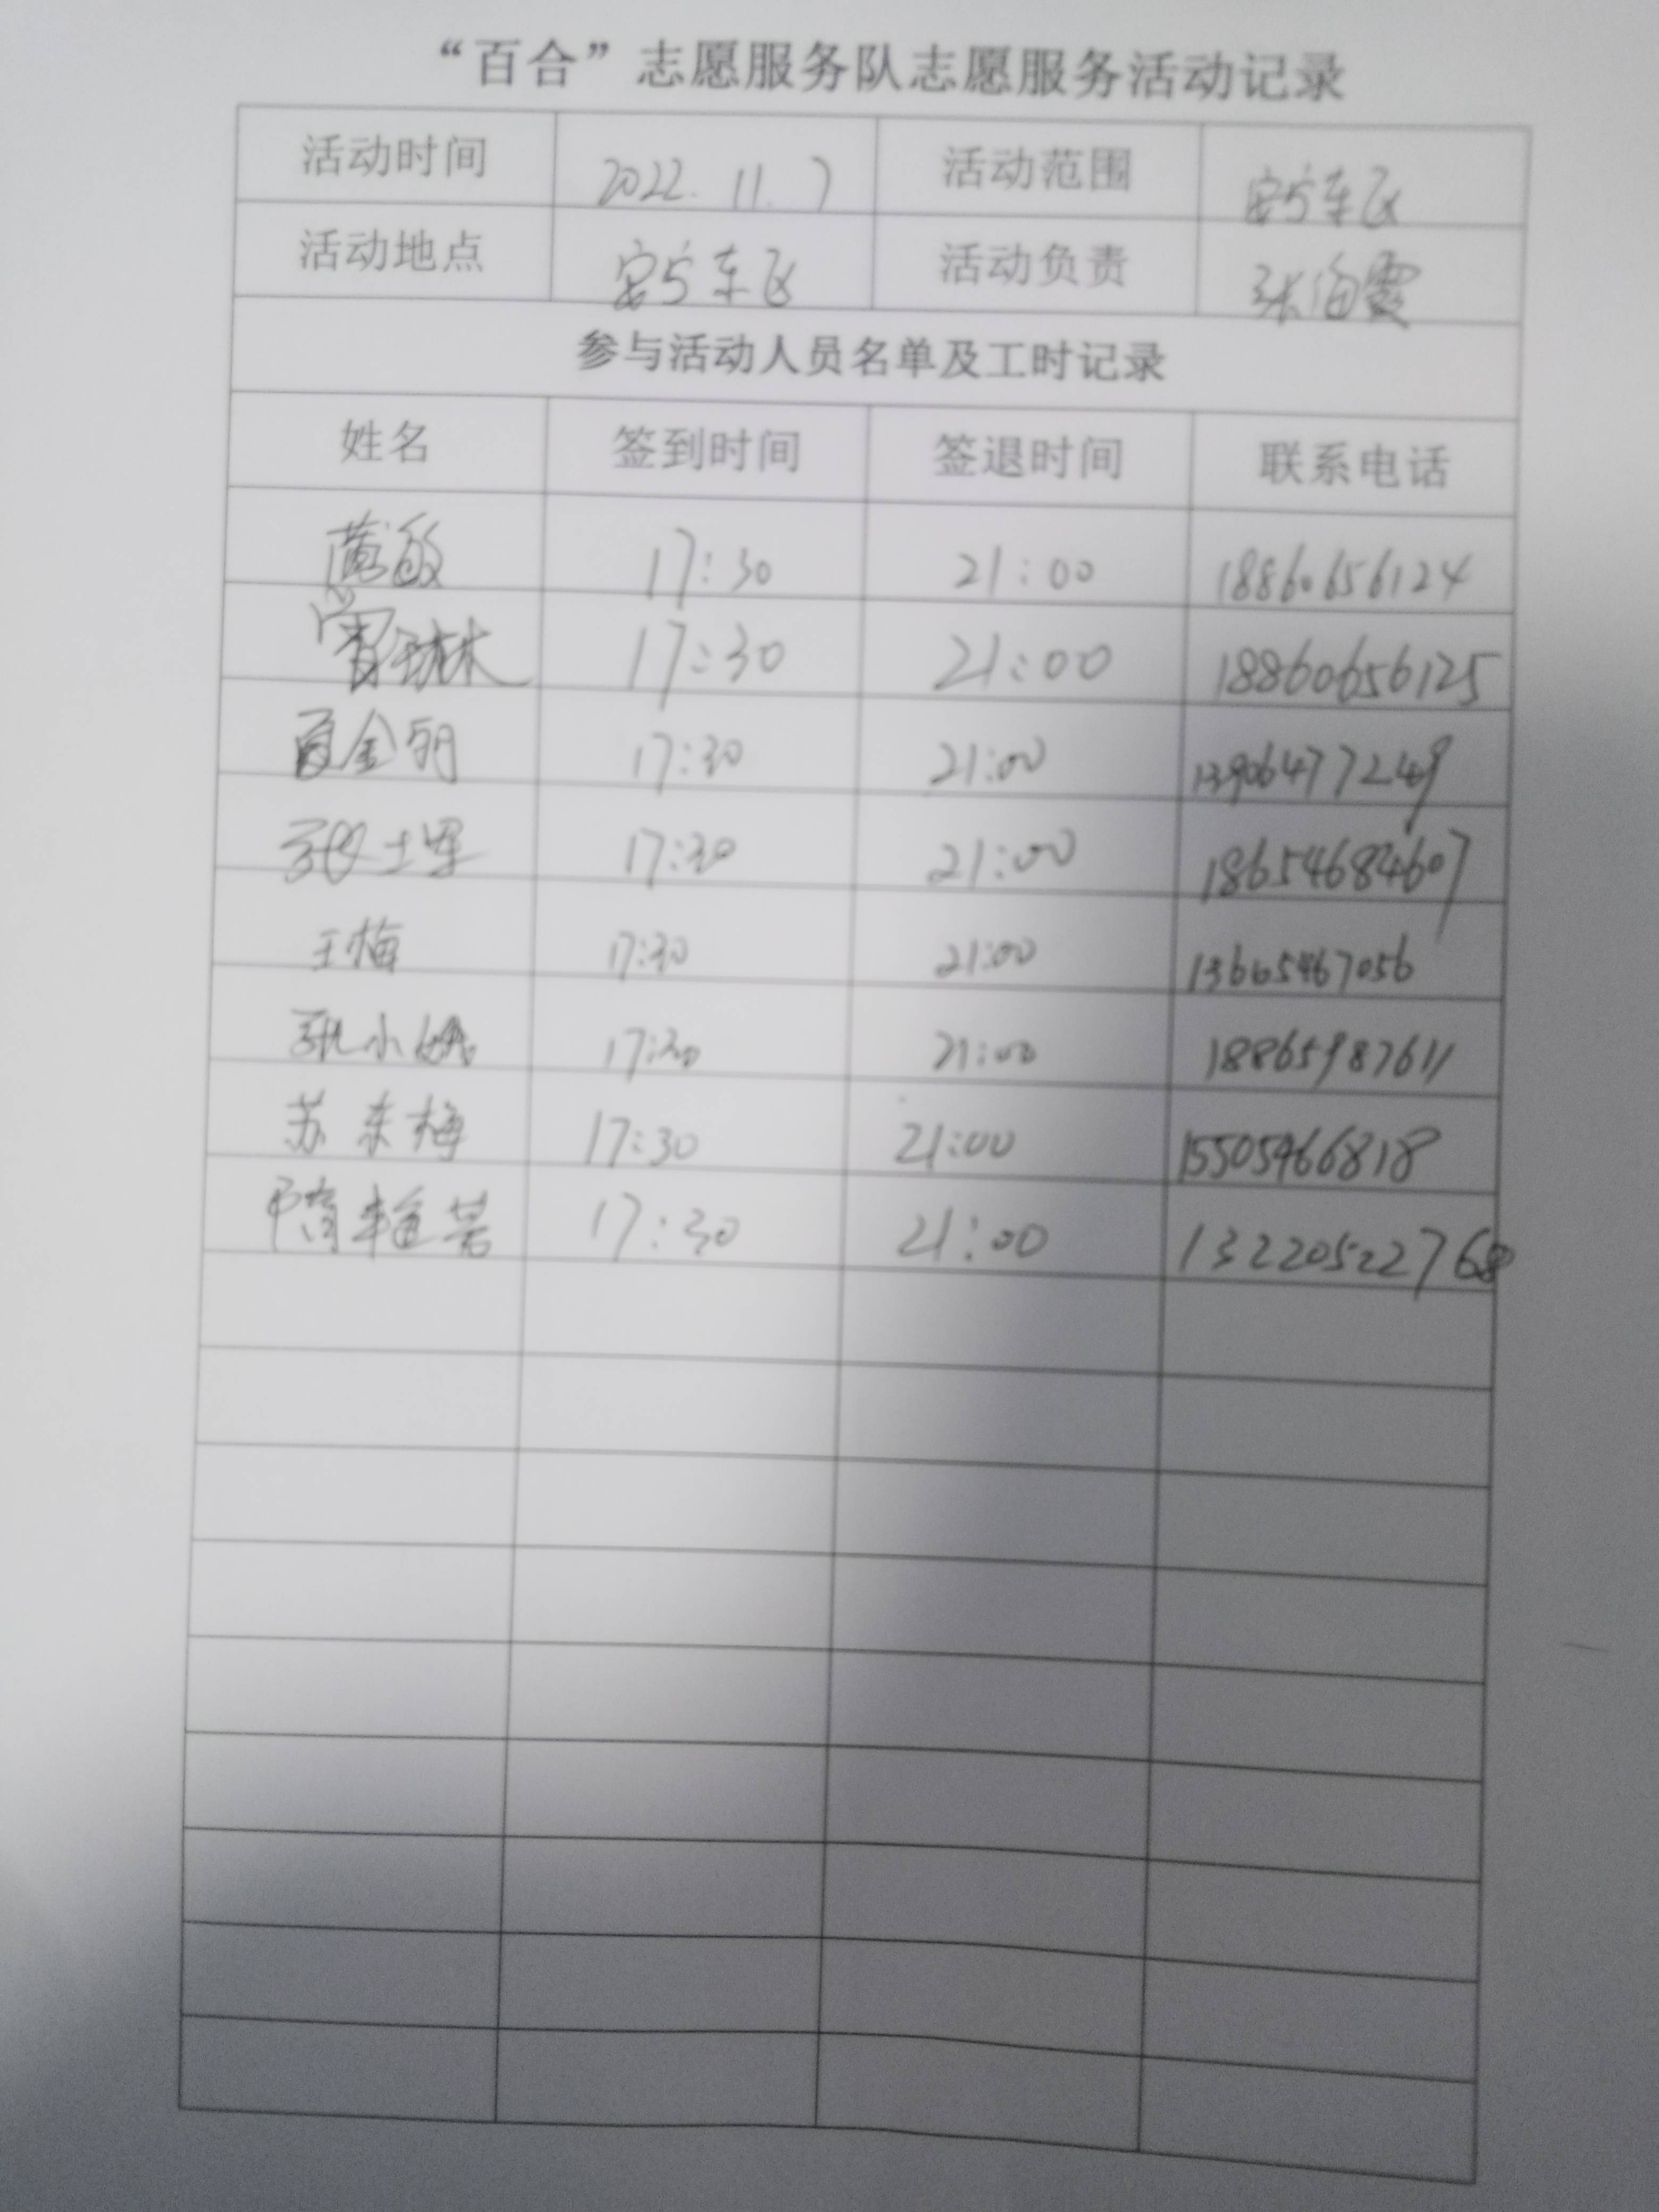 “百合”志愿服务队志愿服务活动记录
活动时间 2022.11.7 活动范围 安宁东区
活动地点 安宁东区 活动负责 张海霞
参与活动人员名单及工时记录
姓名 签到时间 签退时间 联系电话
薄敏 17:30 21:00 18860656124
17:30 21:00 18860656125
17:30 21:00
17:30 21:00 18654684607
王梅 17:30 21:00 13665467056
张小娥 17:30 21:00 18865987611
苏东梅 17:30 21:00 15505466818
17:30 21:00 13220522768